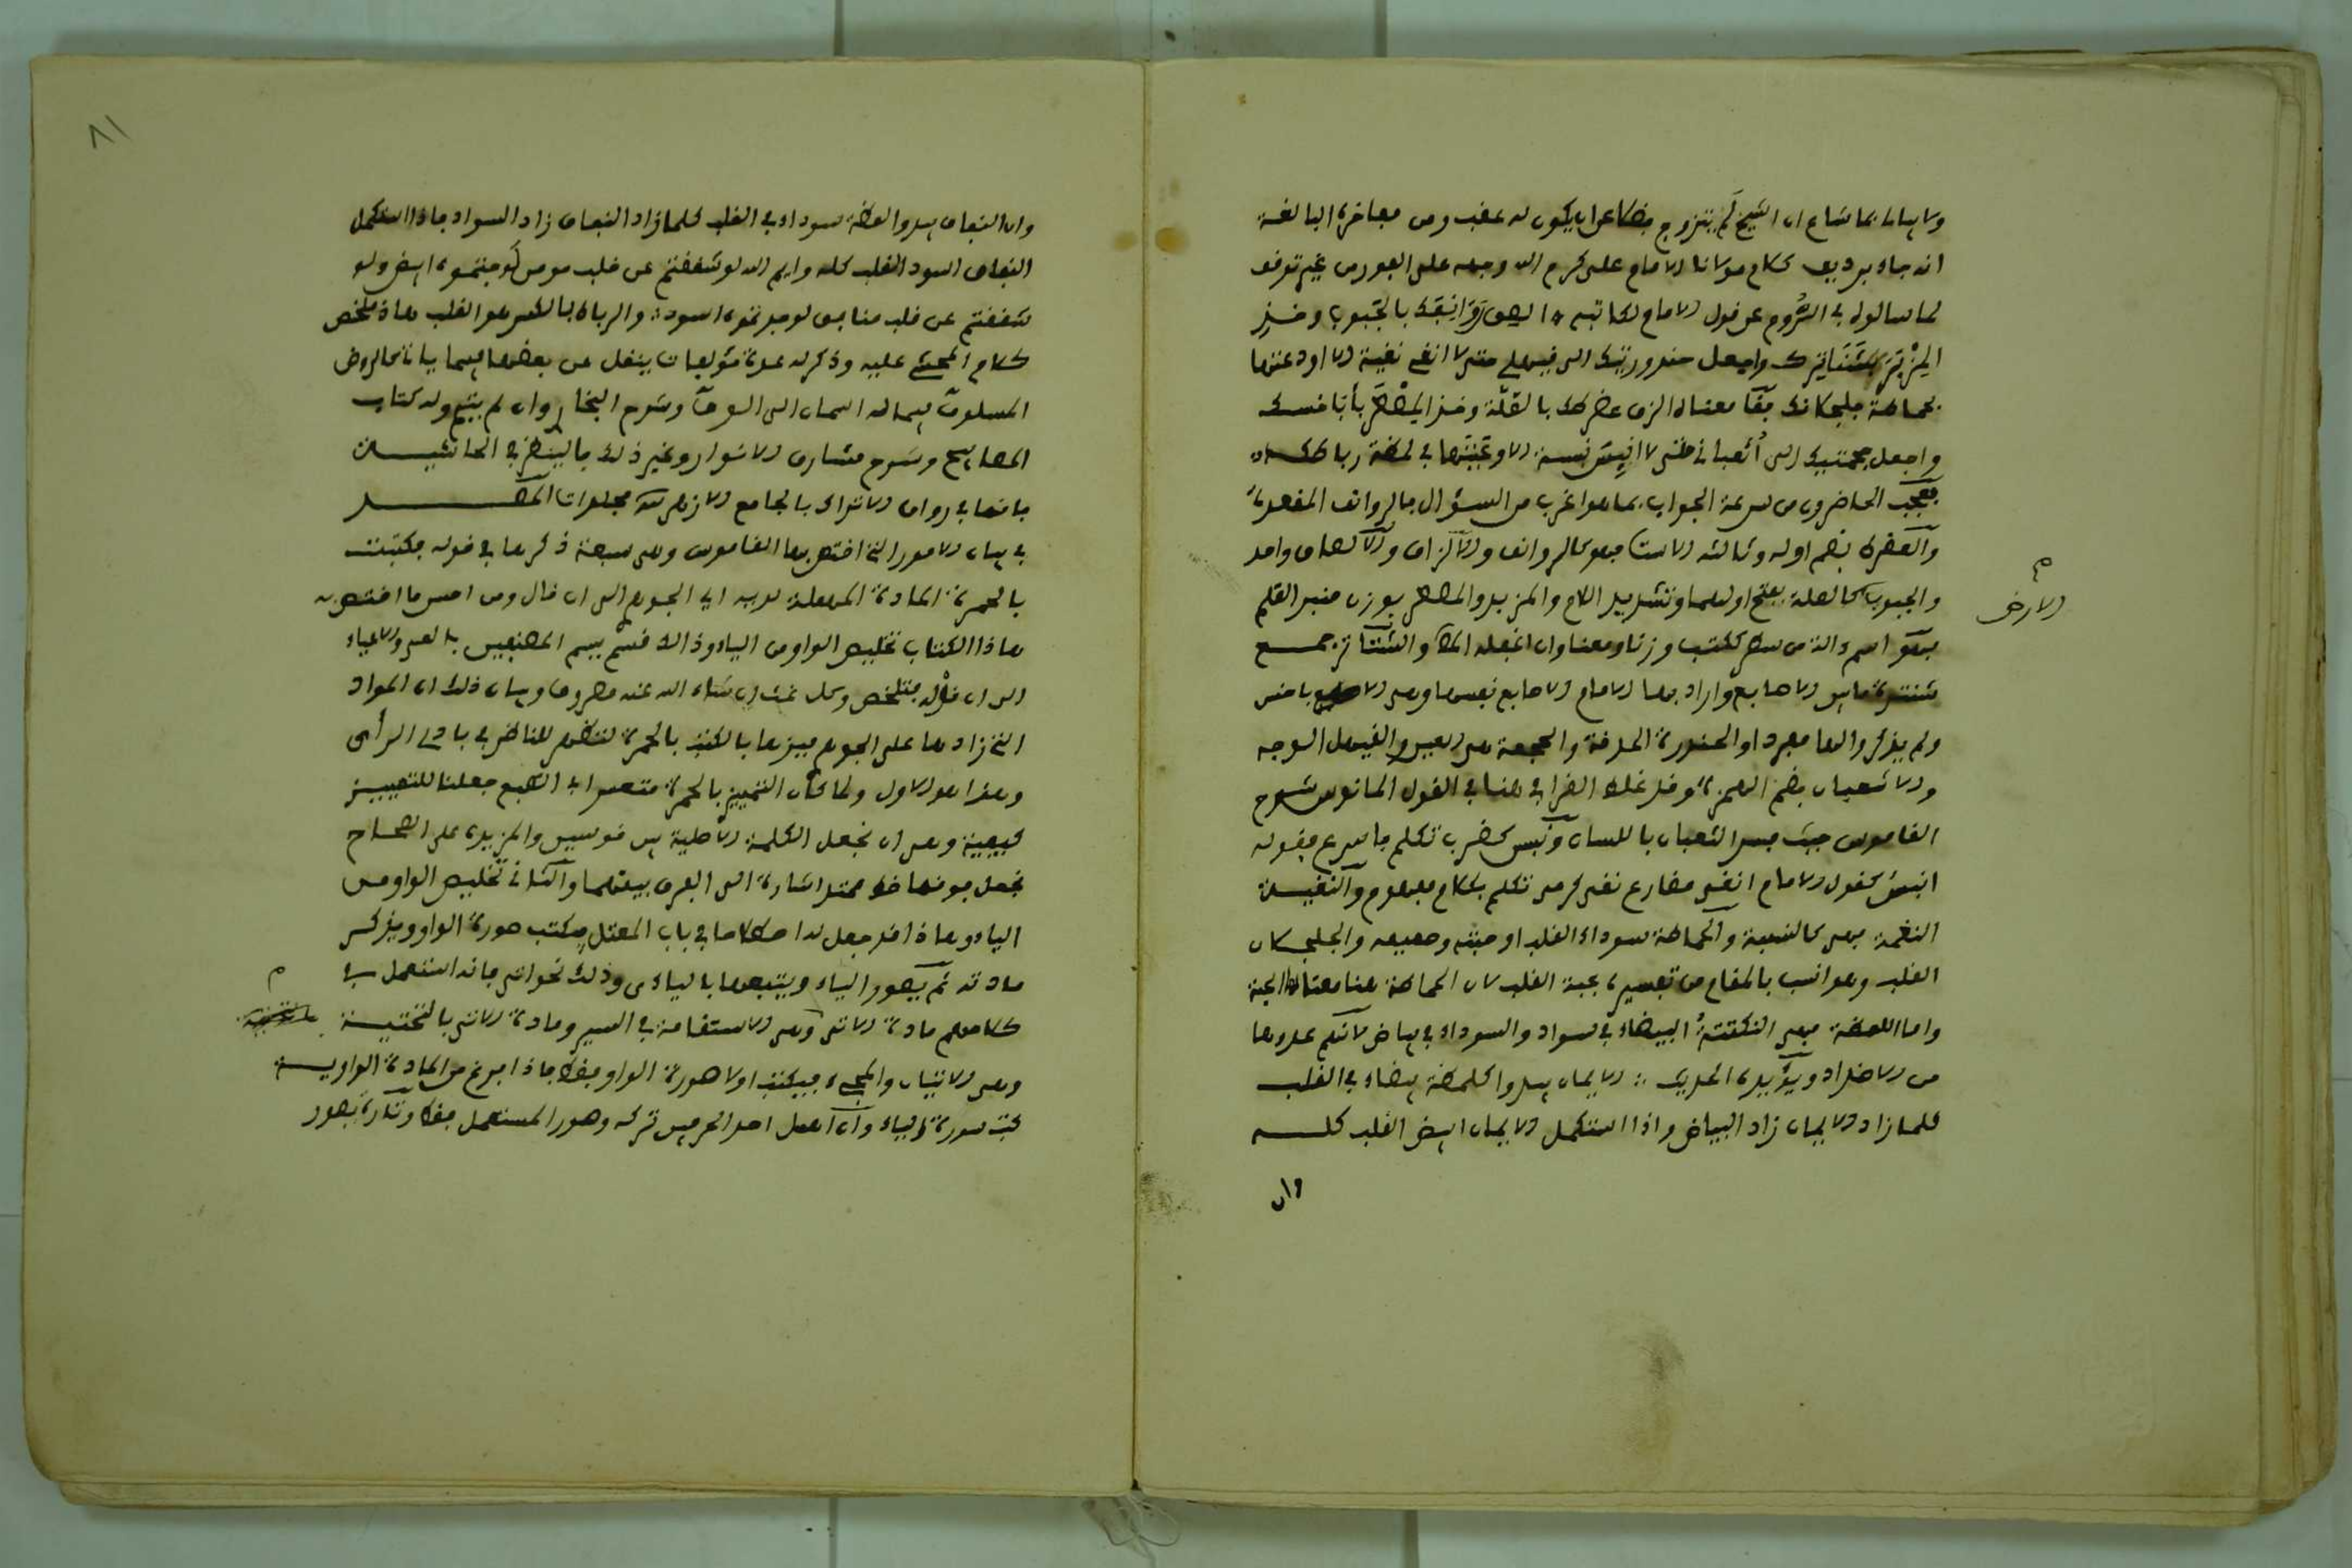 ولا يبالى بما شاع ان الشيخ لم يتزوج فضلا عن ان يكون له عقب ومن مفاخره البالغة
انه جاء برديف كلام مولانا الامام على كرم الله وجهه على الفور من غير توقف
لما سالوه فى الروم عن قول الامام لكاتبه الصق روانفك بالجبوب وخذ
المزبر بشناترك واجعل حندورتيك الى قيهلى حتى لا انغى نغية الا اودعتها
بحماطة جلجلانك فقا معناه الزق عضرطك بالصلة وخذ المصطر بأباخسك
واجعل جحمتيك الى أثعبانى حتى لا انبس نبسة الا وعيتها فى لمظة رباطك اه
فعجب الحاضرون من سرعة الجواب بما هو اغرب من السؤال فالروانف المقعدة
والعضرط بضم اوله وثالثه الاست فهو كالروانف والالزاق والالصاق واحد
والجبوب كالصلة بفتح اولهما وتشديد اللام والمزبر والمصطر بوزن منبر القلم
فهو اسم ءالة من سطر ككتب وزنا ومعنى وان اغفله المص والشناتر جمع
شنترة ما بين الاصابع واراد بها الامام الاصابع نفسها وهى الاباخس
ولم يذكروا لها مفردا والحندورة الحدقة والجحمة هى العين والقيهل الوجه
والاثعبان بضم الهمزة وقد غلط القرافى هنا فى القول المانوس شرح
القاموس حيث فسر الثعبان باللسان ونبس كضرب تكلم فاسرع فقوله
انبس كقول الامام انغى مضارع نغى كرمى تكلم بكلام مفهوم والنغية
النغمة فهى كالنبسة والحماطة سوداء القلب او حبته وصميمه والجلجلان
القلب وهو انسب بالمقام من تفسيره بحبة القلب لان الحماطة هنا معناها الحبة
واما اللمظة فهى النكتة البيضاء فى سواد والسوداء فى بياض لانكم عدوها
من الاضداد ويؤيده الحديث : الايمان يبدو كلمظة بيضاء فى القلب
كلما زاد الايمان زاد البياض واذا استكمل الايمان ابيض القلب كله
وان
الارض
٨١
وان النفاق يبدو المظة سوداء فى القلب كلما زاد النفاق زاد السواد فاذا استكمل
النفاق اسود القلب كله وايم الله لو شققتم عن قلب مومن لوجدتموه ابيض ولو
شققتم عن قلب منافق لوجدتموه اسود : والرباط بالكسر هو القلب هاذ ملخص
كلام المحشى عليه وذكر له عدة مؤلفات ينقل عن بعضها فيما ياتى كالروض
المسلوف فيما له اسمان الى الوف وشرح البخارى وان لم يتم وله كتاب
المصابيح وشرح مشارق الانوار وغير ذلك فاليُنظر فى الحاشيتين
فانها فى رواق الاتراك بالجامع الازهر سبة مجلدات المقصد
فى بيان الامور التى اختص بها القاموس وهى سبعة ذكرها فى قوله فكتبت
بالحمرة المادة المهملة لديه اى الجوهرى الى ان قال ومن احسن ما اختص به
هاذا الكتاب تخليص الواو من الياء وذلك قسم يسم المصنفين بالعى والاعياء
الى ان قال فتلخص وكل غث ان شاء الله عنه مصروف وبيان ذلك ان المواد
التى زادها على الجوهرى ميزها بالكتب بالحمرة لتظهر للناظر فى بادى الرأى
وهذا هو الاول ولما كان التمييز بالحمرة متعسرا فى الطبع جعلنا للتمييز
كيفية وهى ان نجعل الكلمة الاصلية بين قوسين والمزيدة على الصحاح
نجعل فوقها خط ممتد اشارة الى الفرق بينهما والثانى تخليص الواو من
الياء وهاذا قد جعل لها صطلاحا فى باب المعتل فيكتب صورة الواو ويذكر
مادته ثم يصور الياء ويتبعها بالياء ى وذلك نحو اتى فانه استعمل فى
كلامهم مادة الاتو وهى الاستقامة فى السير ومادة الاتى بالتحتية
وهى الاتيان والمجىء فيكتب اولا صورة الواو فقط فاذا فرغ من المادة الواوية
كتب صورة الياء وان اهمل احد الحرفين تركه وصور المستعمل فقط وتارة يصور